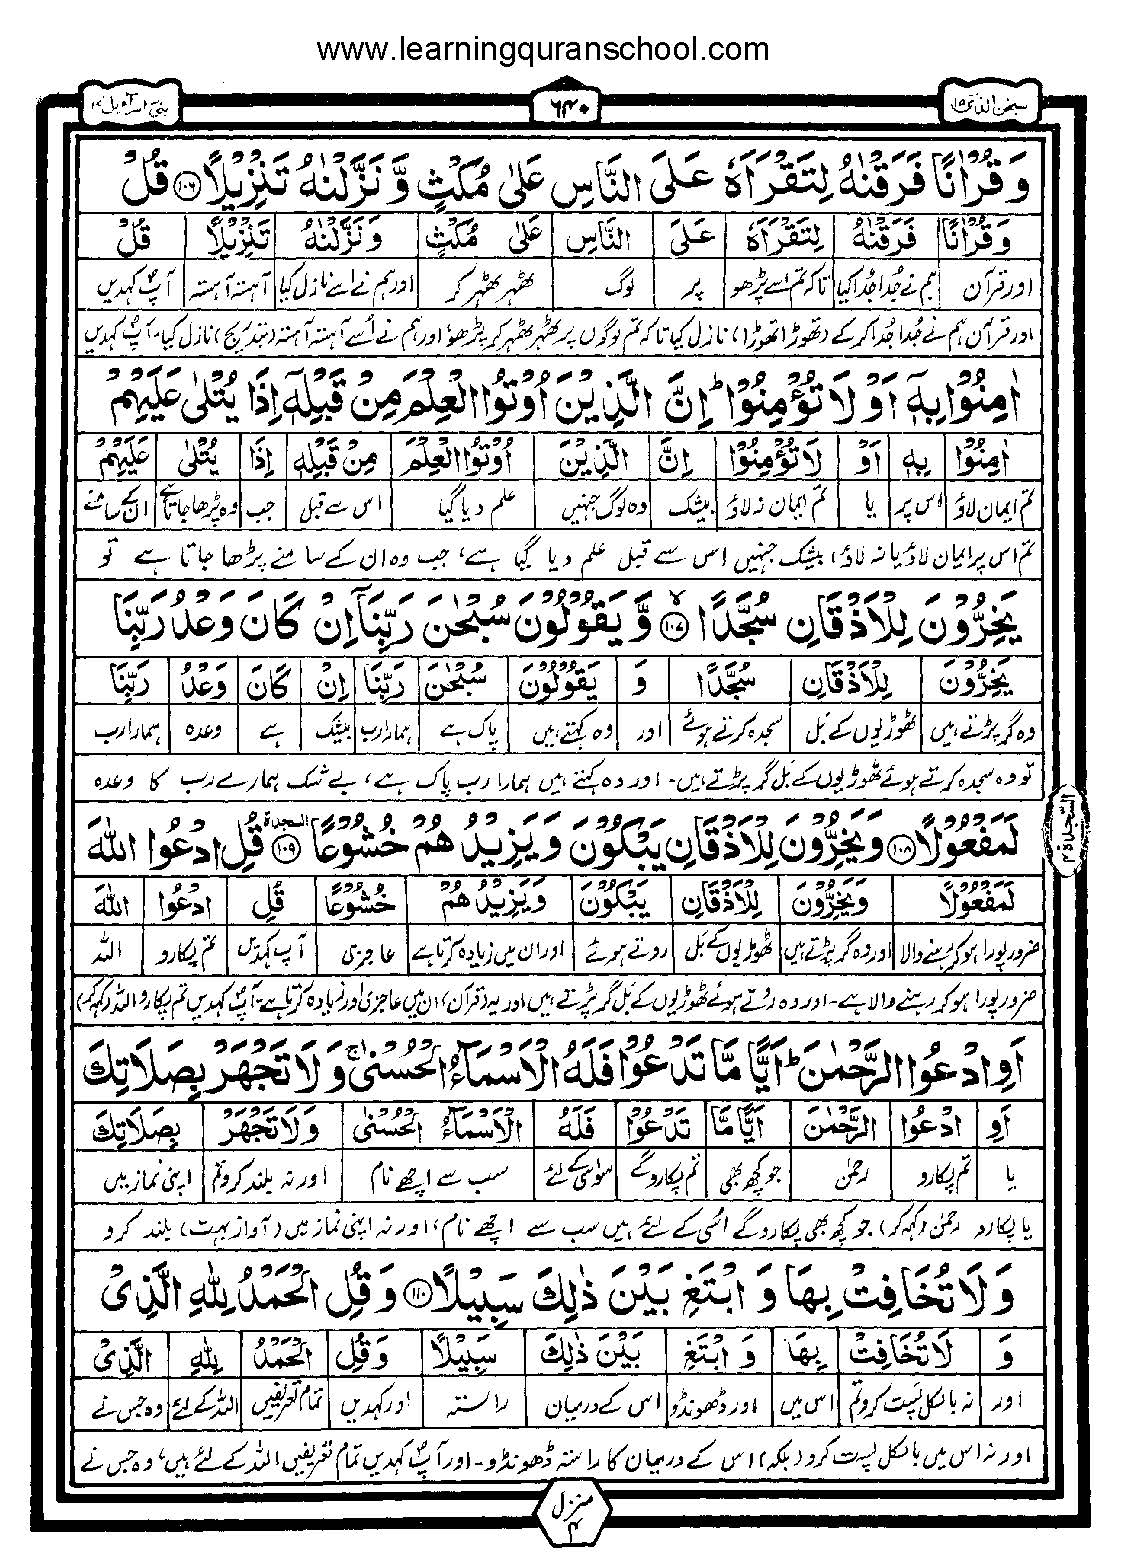 www.learningquranschool.com
سبحن الذی ۱۵
۶۴۰
بنی اسرآءیل ۱۷
وَ قُرْاٰنًا فَرَقْنٰهُ لِتَقْرَاَهٗ عَلَى النَّاسِ عَلٰى مُكْثٍ وَّ نَزَّلْنٰهُ تَنْزِیْلًا ۱۰۶ قُلْ
وَقُرْاٰنًا فَرَقْنٰهُ لِتَقْرَاَهٗ عَلَى النَّاسِ عَلٰى مُكْثٍ وَنَزَّلْنٰهُ تَنْزِیْلًا قُلْ
اور قرآن ہم نے جُدا جُدا کیا تاکہ تم اسے پڑھو پر لوگ ٹھہر ٹھہر کر اور ہم نے اسے نازل کیا آہستہ آہستہ آپ کہدیں
اور قرآن ہم نے جُدا جُدا کرکے (تھوڑا تھوڑا) نازل کیا تاکہ تم لوگوں پر ٹھہر ٹھہر کر پڑھو اور ہم نے اُسے آہستہ آہستہ (بتدریج) نازل کیا۔ آپ کہدیں
اٰمِنُوْا بِهٖۤ اَوْ لَا تُؤْمِنُوْا ؕ اِنَّ الَّذِیْنَ اُوْتُوا الْعِلْمَ مِنْ قَبْلِهٖۤ اِذَا یُتْلٰى عَلَیْهِمْ
اٰمِنُوْا بِهٖ اَوْ لَا تُؤْمِنُوْا اِنَّ الَّذِیْنَ اُوْتُوا الْعِلْمَ مِنْ قَبْلِهٖ اِذَا یُتْلٰى عَلَیْهِمْ
تم ایمان لاؤ اس پر یا تم ایمان نہ لاؤ بیشک وہ لوگ جنہیں علم دیا گیا اس سے قبل جب وہ پڑھا جاتا ہے ان کے سامنے
تم اس پر ایمان لاؤ یا نہ لاؤ، بیشک جنہیں اس سے قبل علم دیا گیا ہے، جب وہ ان کے سامنے پڑھا جاتا ہے تو
یَخِرُّوْنَ لِلْاَذْقَانِ سُجَّدًا ۱۰۷ ۙ وَّ یَقُوْلُوْنَ سُبْحٰنَ رَبِّنَاۤ اِنْ كَانَ وَعْدُ رَبِّنَا
یَخِرُّوْنَ لِلْاَذْقَانِ سُجَّدًا وَ یَقُوْلُوْنَ سُبْحٰنَ رَبِّنَا اِنْ كَانَ وَعْدُ رَبِّنَا
وہ گر پڑتے ہیں ٹھوڑیوں کے بل سجدہ کرتے ہوئے اور وہ کہتے ہیں پاک ہے ہمارا رب بیشک ہے وعدہ ہمارا رب
تو وہ سجدہ کرتے ہوئے ٹھوڑیوں کے بل گر پڑتے ہیں۔ اور وہ کہتے ہیں ہمارا رب پاک ہے، بے شک ہمارے رب کا وعدہ
لَمَفْعُوْلًا ۱۰۸ وَ یَخِرُّوْنَ لِلْاَذْقَانِ یَبْكُوْنَ وَ یَزِیْدُ هُمْ خُشُوْعًا السجدة ۱۰۹ قُلِ ادْعُوا اللّٰهَ
السجدة ۴
لَمَفْعُوْلًا وَیَخِرُّوْنَ لِلْاَذْقَانِ یَبْكُوْنَ وَیَزِیْدُ هُمْ خُشُوْعًا قُلِ ادْعُوا اللّٰهَ
ضرور پورا ہو کر رہنے والا اور وہ گر پڑتے ہیں ٹھوڑیوں کے بل روتے ہوئے اور ان میں زیادہ کرتا ہے عاجزی آپ کہدیں تم پکارو اللہ
ضرور پورا ہو کر رہنے والا ہے۔ اور وہ روتے ہوئے ٹھوڑیوں کے بل گر پڑتے ہیں اور یہ (قرآن) ان میں عاجزی اور زیادہ کرتا ہے۔ آپ کہدیں تم پکارو اللہ (کہہ کر)
اَوِ ادْعُوا الرَّحْمٰنَ ؕ اَیًّا مَّا تَدْعُوْا فَلَهُ الْاَسْمَآءُ الْحُسْنٰى ۚ وَ لَا تَجْهَرْ بِصَلَاتِكَ
اَوِ ادْعُوا الرَّحْمٰنَ اَیًّامَّا تَدْعُوْا فَلَهُ الْاَسْمَآءُ الْحُسْنٰى وَلَا تَجْهَرْ بِصَلَاتِكَ
یا تم پکارو رحمٰن جو کچھ بھی تم پکارو گے سو اسی کے لئے سب سے اچھے نام اور نہ بلند کرو تم اپنی نماز میں
یا پکارو رحمٰن (کہہ کر) جو کچھ بھی پکارو گے اُسی کے لئے ہیں سب سے اچھے نام، اور نہ اپنی نماز میں (آواز بہت) بلند کرو
وَ لَا تُخَافِتْ بِهَا وَ ابْتَغِ بَیْنَ ذٰلِكَ سَبِیْلًا ۱۱۰ وَ قُلِ الْحَمْدُ لِلّٰهِ الَّذِیْ
وَ لَا تُخَافِتْ بِهَا وَ ابْتَغِ بَیْنَ ذٰلِكَ سَبِیْلًا وَقُلِ الْحَمْدُ لِلّٰهِ الَّذِیْ
اور نہ بالکل پست کرو تم اس میں اور ڈھونڈو اس کے درمیان راستہ اور کہدیں تمام تعریفیں اللہ کے لئے وہ جس نے
اور نہ اس میں بالکل پست کرو (بلکہ) اس کے درمیان کا راستہ ڈھونڈو۔ اور آپ کہدیں تمام تعریفیں اللہ کے لئے ہیں، وہ جس نے
منزل ۴